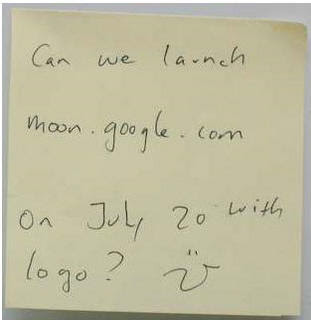 Can we launch
moon.google.com
On July 20 with
logo?